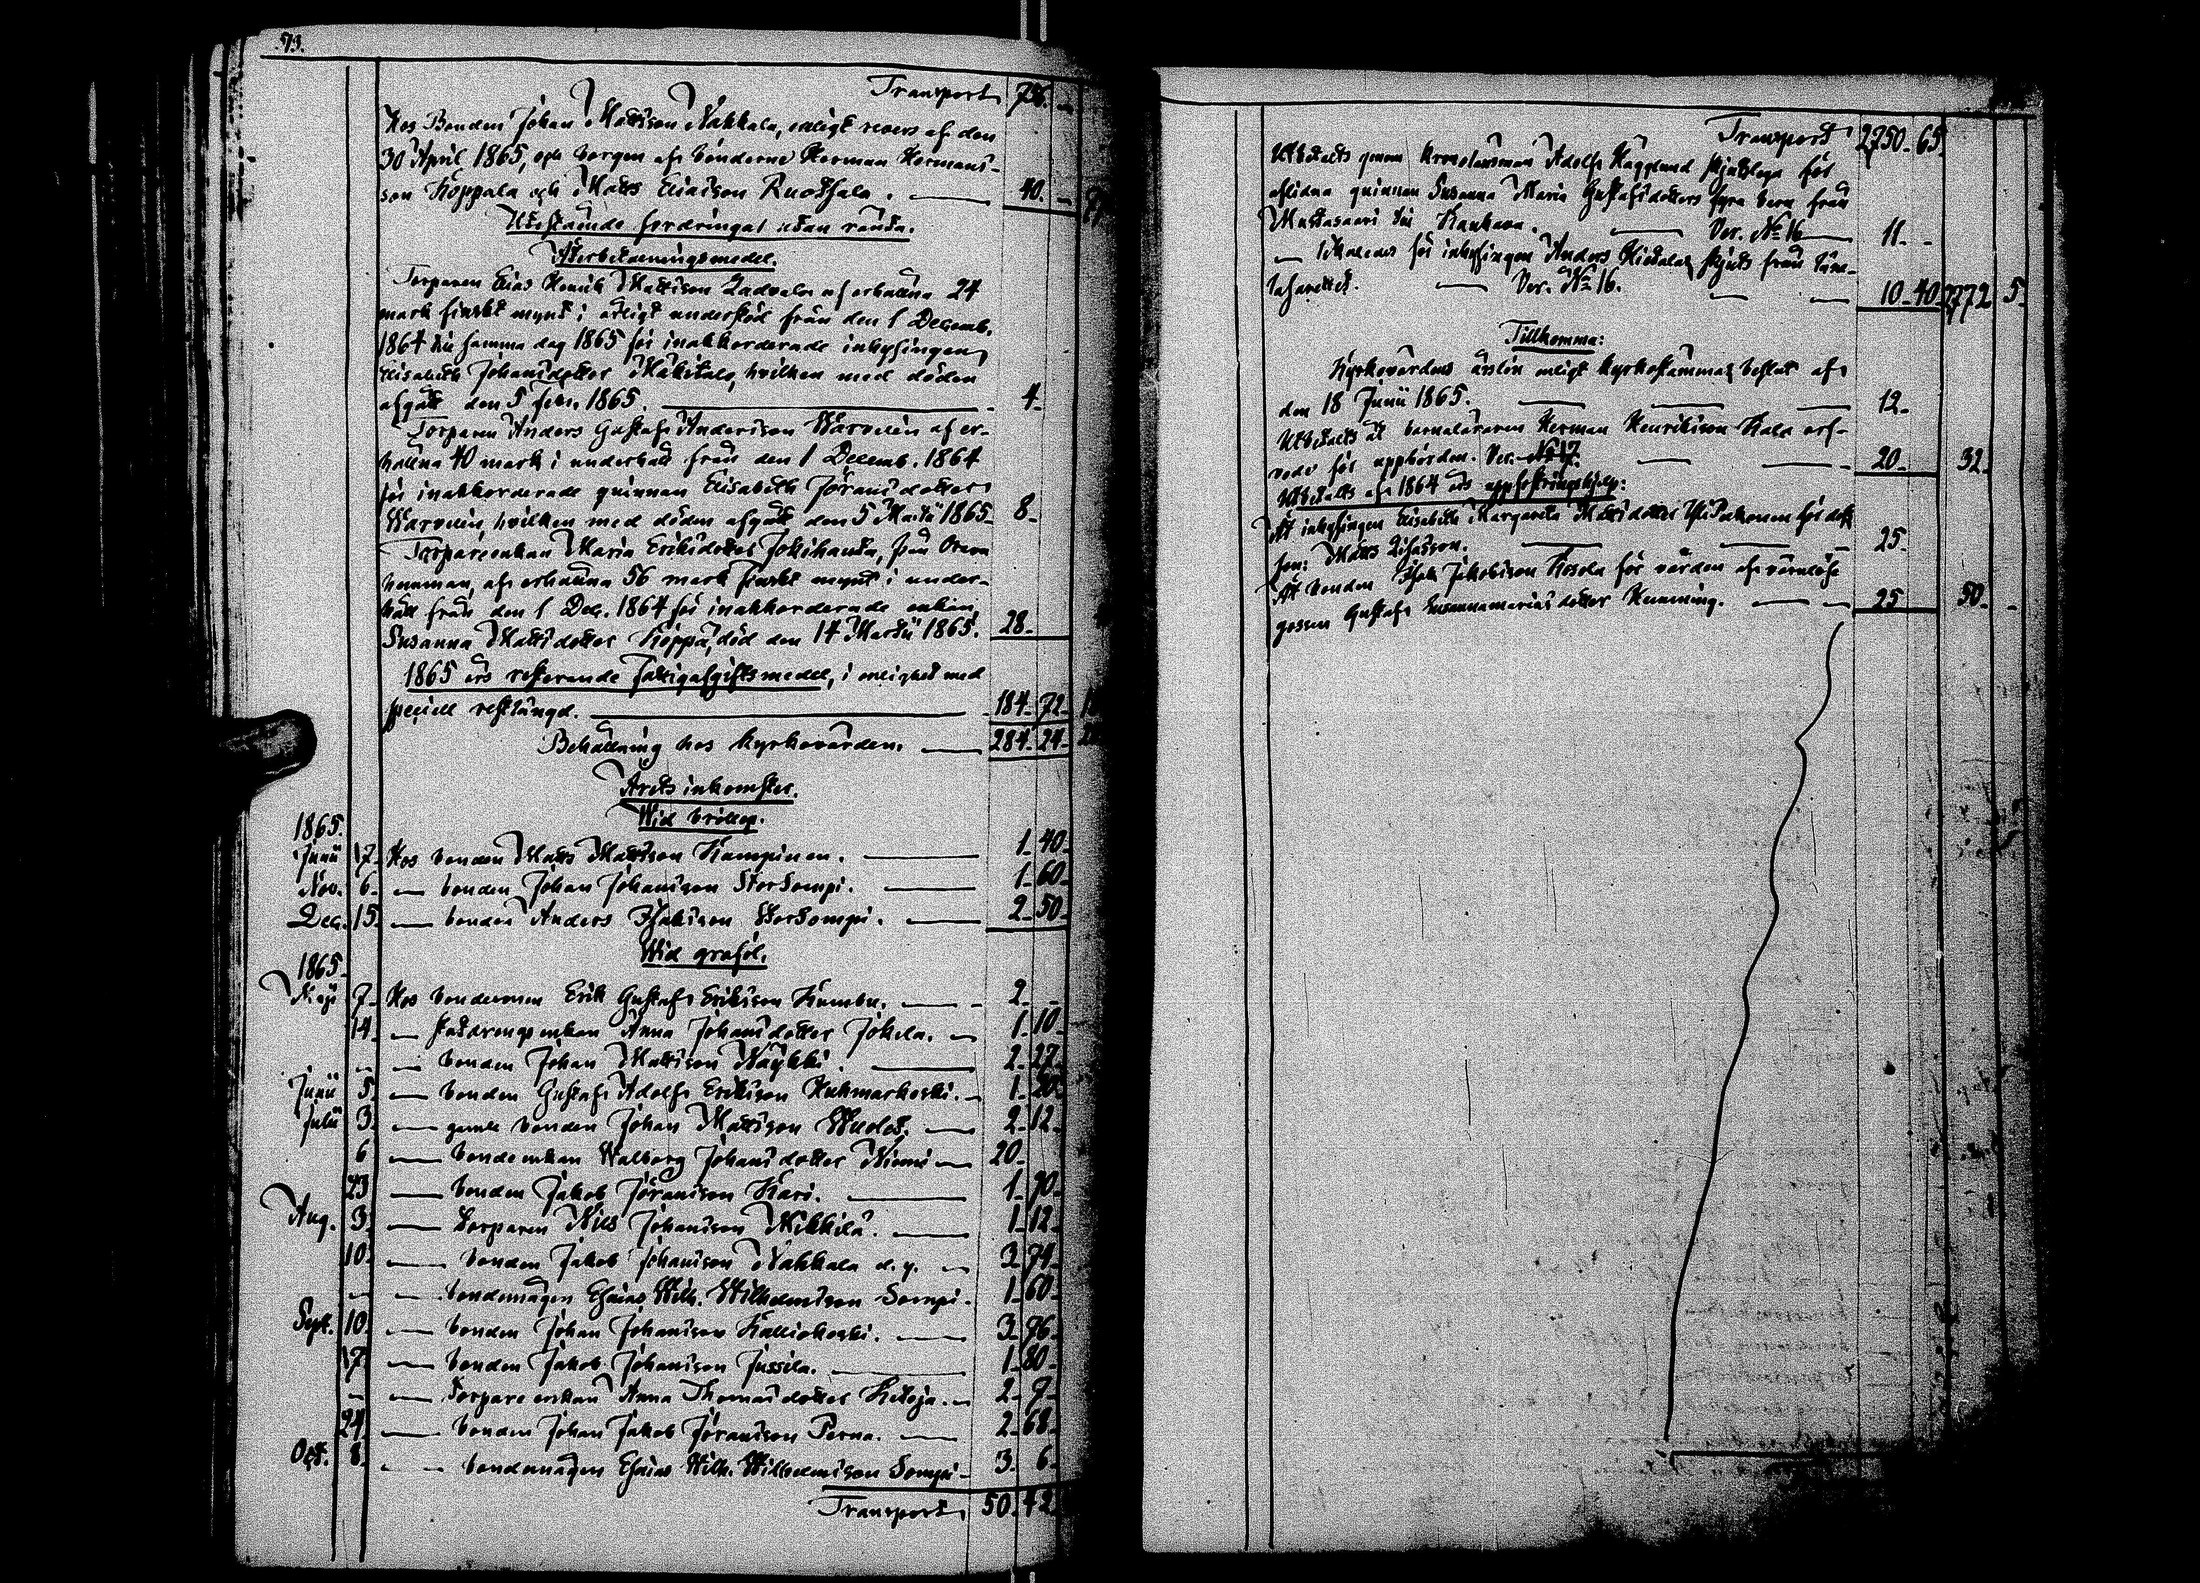 513.
Transport 756. -
Hos Bonden Johan Mattsson Nahkala, enligt revers af den
30 April 1865, och borgen af bönderne Herman Hermans-
son Köppala och Matts Eliasson Ruotsala. 40. -
Utestående fordringar utan ränta.
Återbetalningsmedel.
Torparen Elias Henrik Mattsson af erhållna 24
mark finskt mynt i årligt understöd från den 1 Decemb.
1864 till samma dag 1865 för inakkorderade inhysingen
Elisabeth Johansdotter Mäkitalo, hvilken med döden
afgått den 5 Febr. 1865. 4.
Torparen Anders Gustaf Andersson Warvelin af er-
hållna 40 mark i underhåll från den 1 Decemb. 1864
för inakkorderade qvinnan Elisabeth Jöransdotter
Warvelin, hvilken med döden afgått den 5 Martii 1865. 8.
Torpareenkan Maria Eriksdotter Jokihanta, från
af erhållna 56 mark finskt mynt i under-
håll från den 1 Dec. 1864 för inakkorderade enkan
Susanna Mattsdotter Köppä, död den 14 Martii 1865. 28.
1865 års resterande fattigafgiftsmedel, i enlighet med
speciell restlängd. 184. 72.
Behållning hos kyrkovärden. 284. 24.
Årets inkomster.
Wid bröllop.
1865.
Junii 17. Hos bonden Matts Mattsson Kampinen. 1. 40.
Nov. 6. — bonden Johan Johansson Storsompi. 1. 60.
Dec. 15. — bonden Anders Isaksson Storsompi. 2. 50.
Wid graföl.
1865.
Maji 7. Hos bondesonen Erik Gustaf Eriksson Kumbu. 2. -
14. — enkan Anna Johansdotter Jokela. 1. 10.
- — bonden Johan Mattsson Näykki. 2. 27.
Junii 5. — bonden Gustaf Adolf Eriksson Kuhmarkoski. 1. 20.
Julii 3. — gamle bonden Johan Mattsson 2. 12.
6 — bondeenkan Walborg Johansdotter Niemi 20.
23 — bonden Jakob Jöransson Kari. 1. 90.
Aug. 3. — torparen Nils Johansson Mikkilä. 1. 12.
10. — bonden Jakob Johansson Nahkala d. y. 3. 74.
- — bondemågen Esaias Wilh. Wilhelmsson Sompi. 1. 60.
Sept. 10. — bonden Johan Johansson Kalliokoski. 3. 96.
17. — bonden Jakob Johansson Jussila. 1. 80.
- — torpareenkan Anna Thomasdotter Ketoja. 2. 9.
24. — bonden Johan Jakob Jöransson Perna. 2. 68.
Oct. 8. — bondemågen Esaias Wilh. Wilhelmsson Sompi. 3. 6.
Transport 50. 42
Transport 2750. 65.
Utbetalts genom Kronolänsman Adolf Hägglund skjutslega för
aflidna qvinnan Susanna Maria Gustafsdotters fyra barn från
Mustasaari till Kauhava. Ver. № 16 11. -
— för inhysingen Anders skjuts från läns-
lasarettet. Ver. № 16. 10. 40. 2772 5.
Tillkomma:
Kyrkovärdens årslön enligt kyrkostämmas beslut af
den 18 Junii 1865. 12.
Utbetalts åt barnaläraren Herman Henriksson Kala arf-
vode för uppbörden. Ver. № 17. 20. 32.
Utbetalts af 1864 års uppfostringshjelp:
Åt inhysingen Elisabeth Margareta Mattsdotter för dess
son: Matts 25.
Åt bonden Isak Jakobsson Kosola för vården af värnlöse
gossen Gustaf Susannamariasdotter Hemming. 25. 50. -